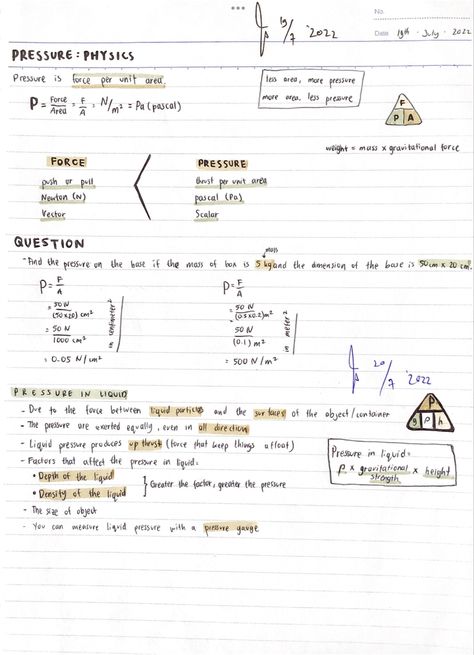 19/7 '2022
No.
Date 19th · July · 2022
PRESSURE : PHYSICS
Pressure is force per unit area.
P = Force/Area = F/A = N/m² = Pa (pascal)
less area, more pressure
more area, less pressure
F
P A
weight = mass x gravitational force
FORCE
push or pull
Newton (N)
Vector
PRESSURE
thrust per unit area
pascal (Pa)
Scalar
QUESTION
mass
-Find the pressure on the base if the mass of box is 5 kg and the dimension of the base is 50cm x 20 cm.
P = F/A
= 50 N/(50x20) cm²
= 50 N/1000 cm²
= 0.05 N/cm²
in centimeter²
P = F/A
= 50 N/(0.5x0.2)m²
50 N/(0.1) m²
= 500 N/m²
in meter²
20/7 '2022
PRESSURE IN LIQUID
- Due to the force between liquid particles and the surfaces of the object/container
- The pressure are exerted equally, even in all direction
- Liquid pressure produces up thrust (force that keep things afloat)
- Factors that affect the pressure in liquid:
• Depth of the liquid
• Density of the liquid
} Greater the factor, greater the pressure
- The size of object
- You can measure liquid pressure with a pressure gauge
P
g ρ h
Pressure in liquid:
ρ x gravitational strength x height